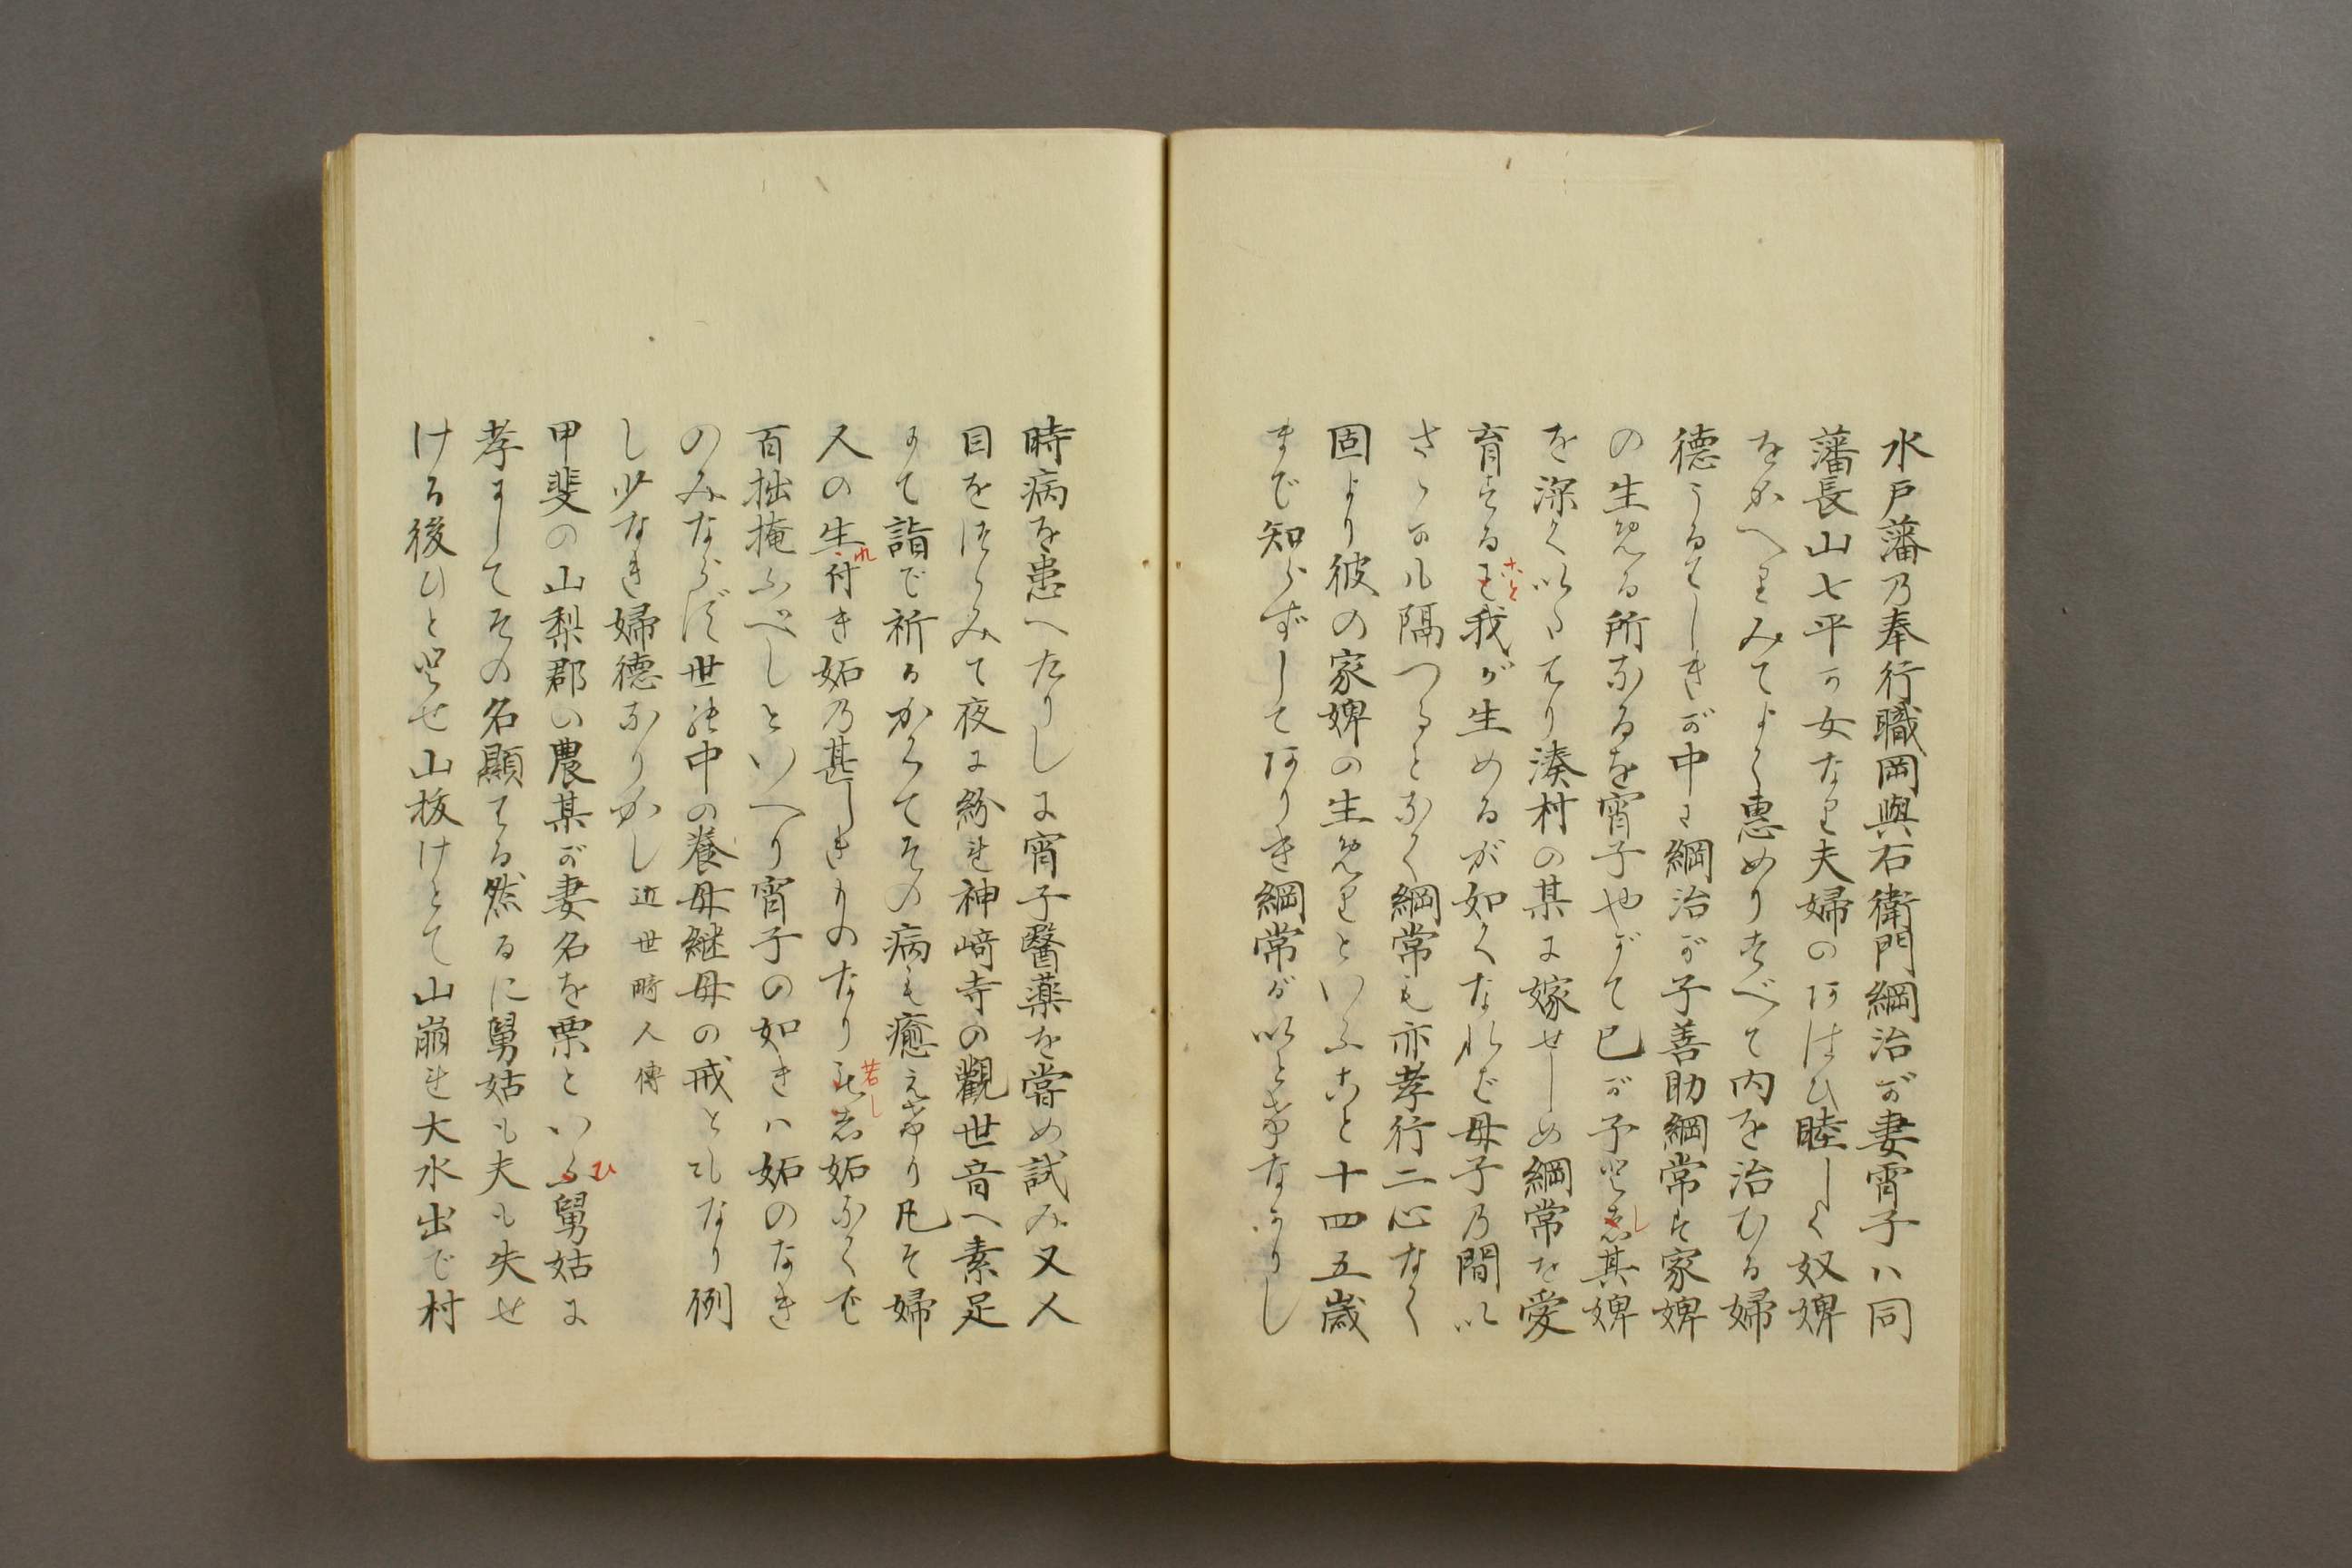 水戸藩乃奉行職岡與右衛門綱治が妻宵子ハ同
藩長山七平か女なり夫婦のあはひ睦しく奴婢
をかへりみてよく惠めりすべて内を治むる婦
德うるはしきが中に綱治が子善助綱常は家婢
の生める所なるを宵子やがて己が子とし其婢
を深くいたはり湊村の某に嫁せしめ綱常を愛
育すること我が生めるが如くなれば母子乃間い
さゝかも隔つることなく綱常も亦孝行二心なく
固より彼の家婢の生めりといふこと十四五歳
まで知らずしてありき綱常がいときなかりし
時病を患へたりしに宵子醫薬を嘗め試み又人
目をはゝみて夜に紛れ神﨑寺の觀世音へ素足
にて詣で祈るかくてその病も癒えけり凡そ婦
人の生れ付き妬乃甚しきものなり若し妬なくば
百拙掩ふべしといへり宵子の如きハ妬のなき
のみならず世の中の養母継母の戒ともなり例
し少なき婦德なりかし近世畸人傳
甲斐の山梨郡の農某が妻名を栗といひ舅姑に
孝にしてその名顯はる然るに舅姑も夫も失せ
ける後ひとゝせ山抜けとて山崩れ大水出で村